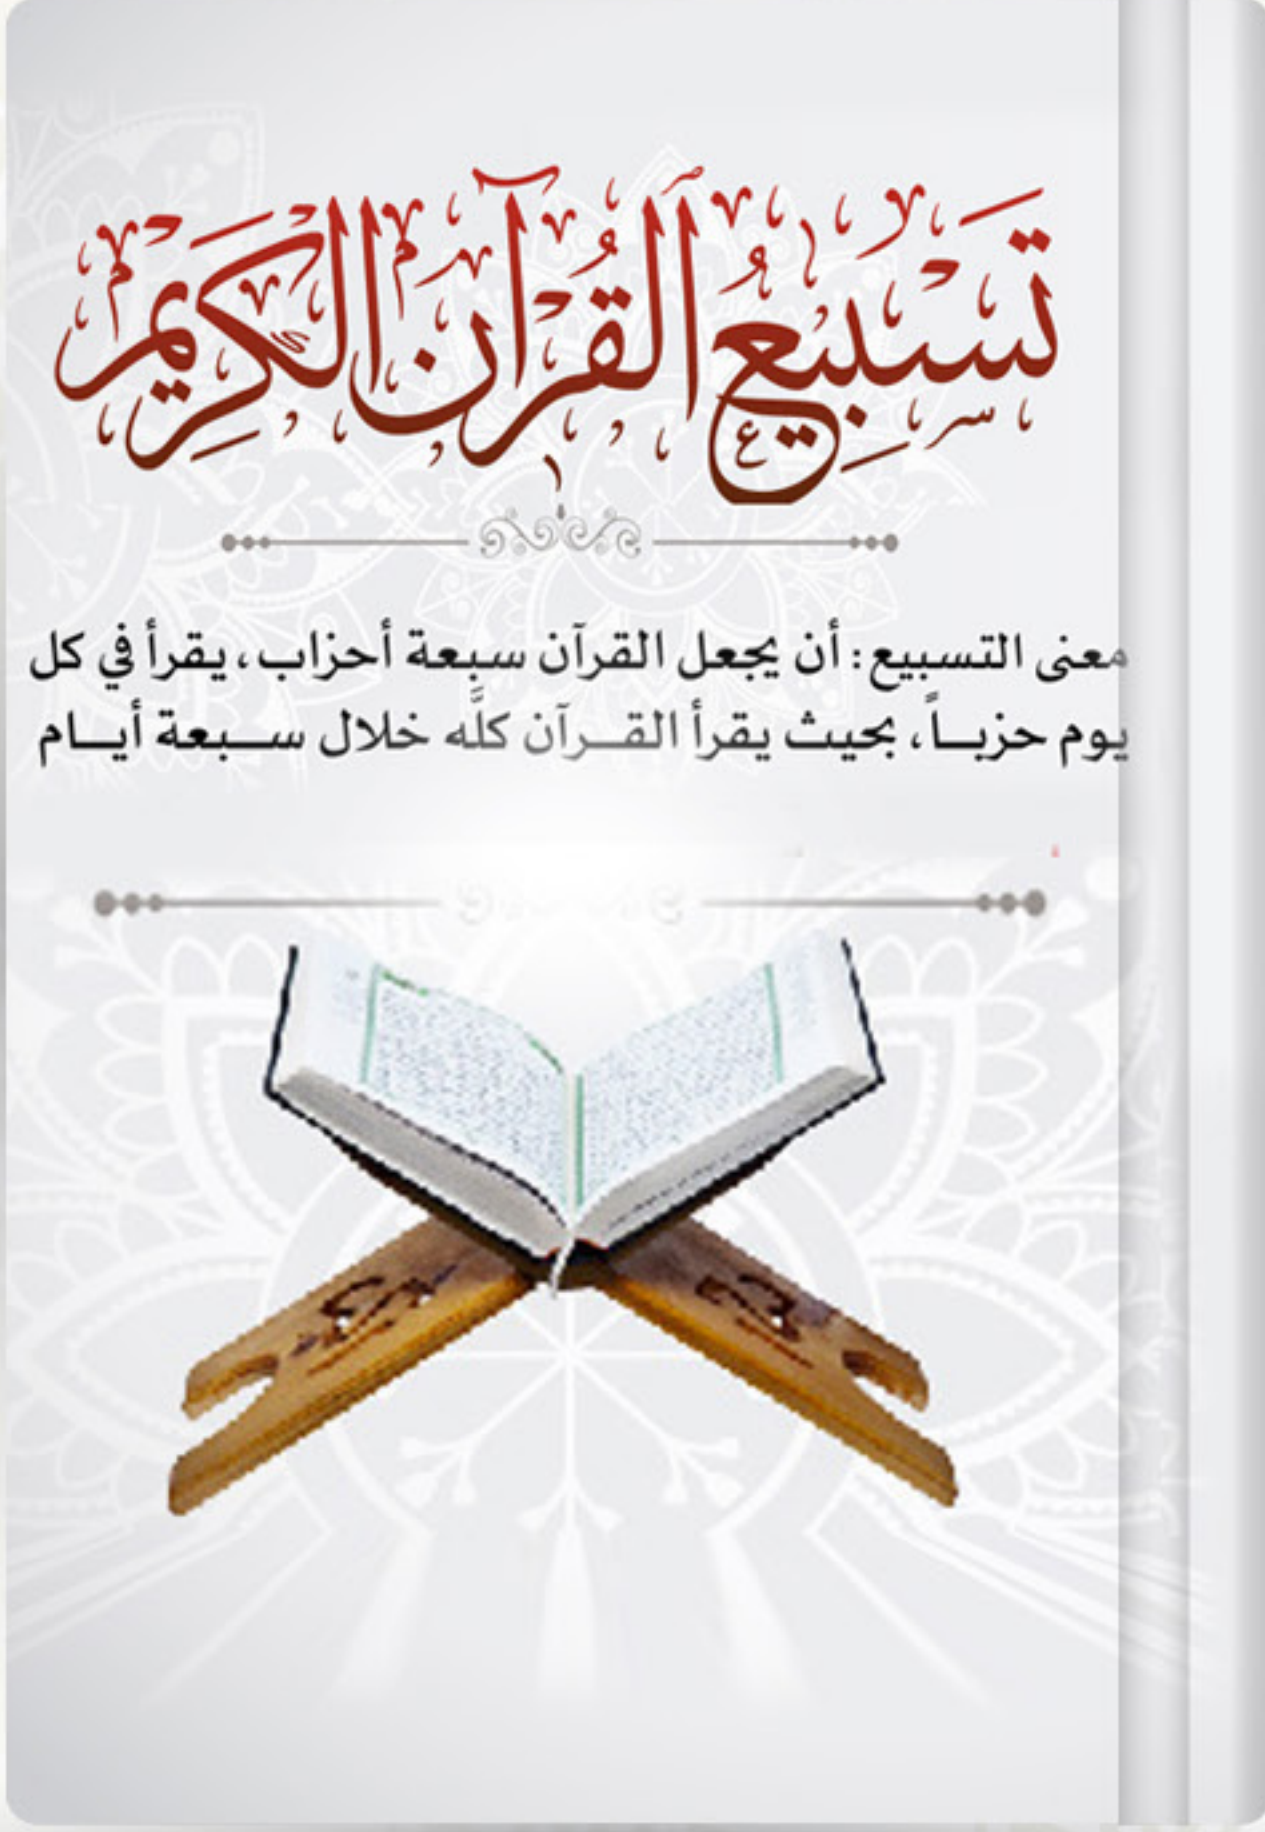 تَسْبِيعُ ٱلْقُرْآنِ الْكَرِيْمِ
معنى التسبيع: أن يجعل القرآن سبعة أحزاب، يقرأ في كل
يوم حزبــاً، بحيث يقرأ القــرآن كلَّه خلال ســبعة أيــام